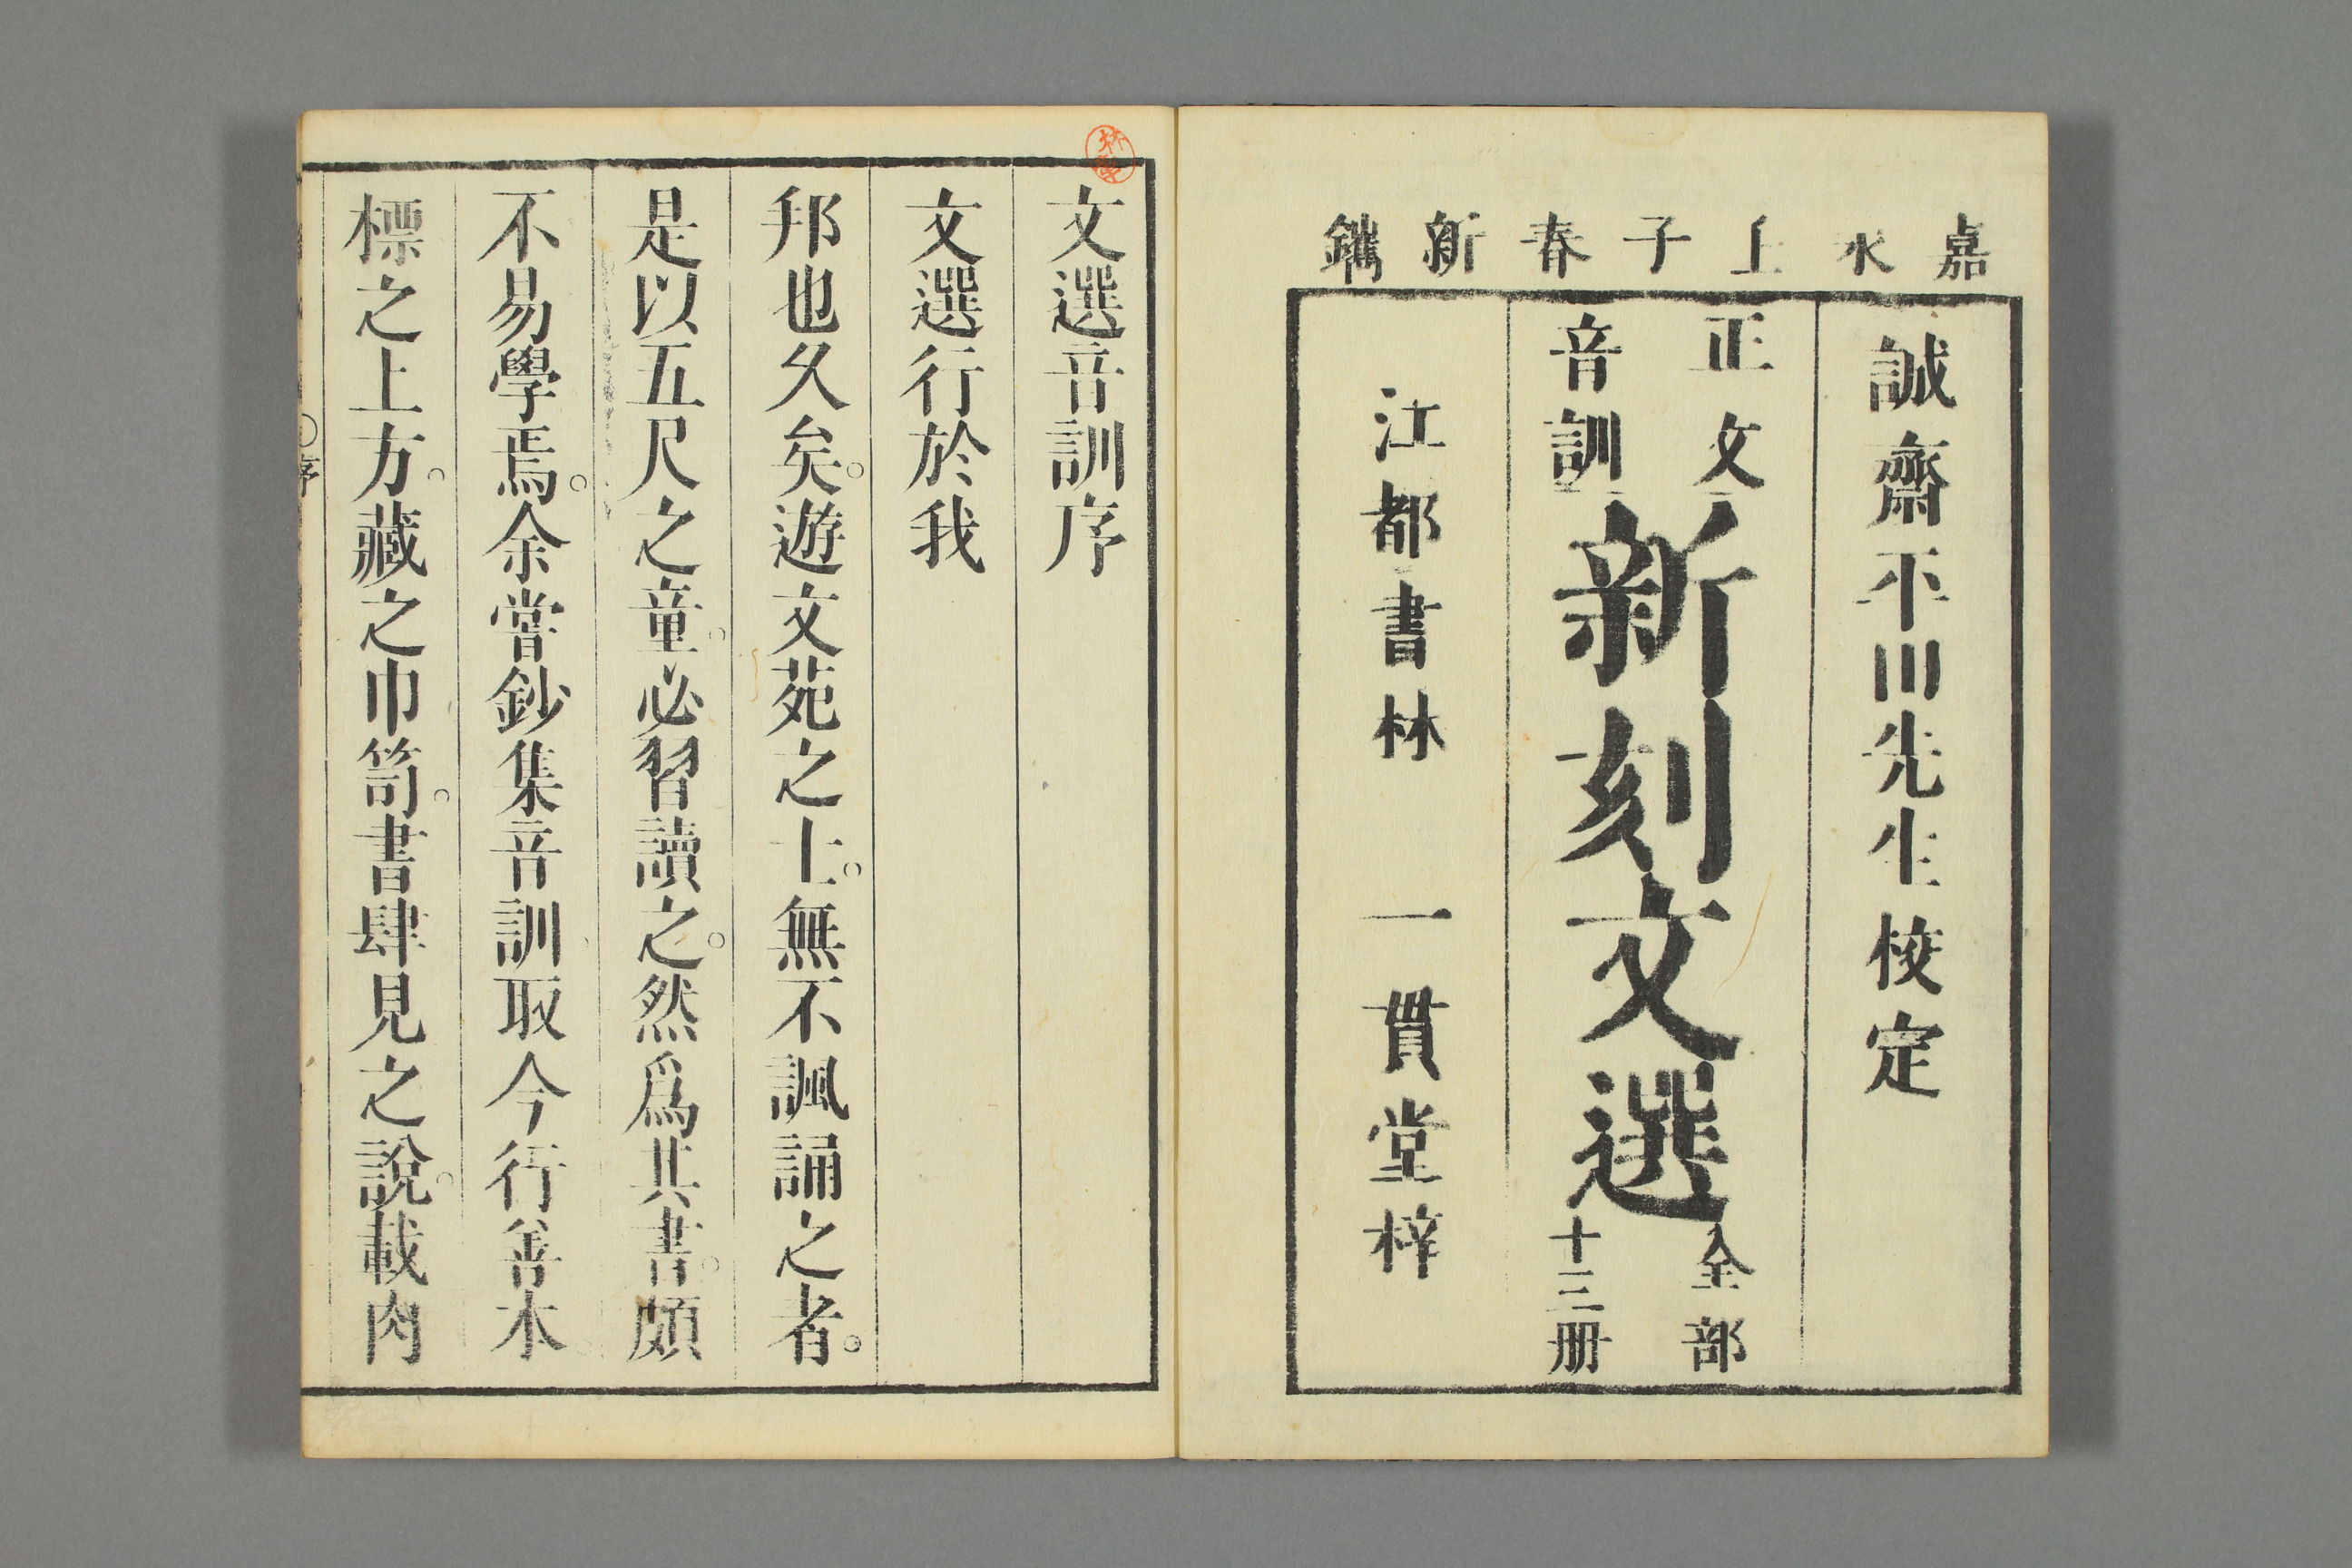 嘉永壬子春新鐫
誠齋平田先生校定
正文
音訓
新刻文選
全部
十三册
江都書林 一貫堂梓
文選音訓序
文選行於我
邦也久矣。遊文苑之士。無不諷誦之者。
是以五尺之童。必習讀之。然爲其書。頗
不易學焉。余嘗鈔集音訓取今行善本
標之上方。藏之巾笥。書肆見之說。載肉
序